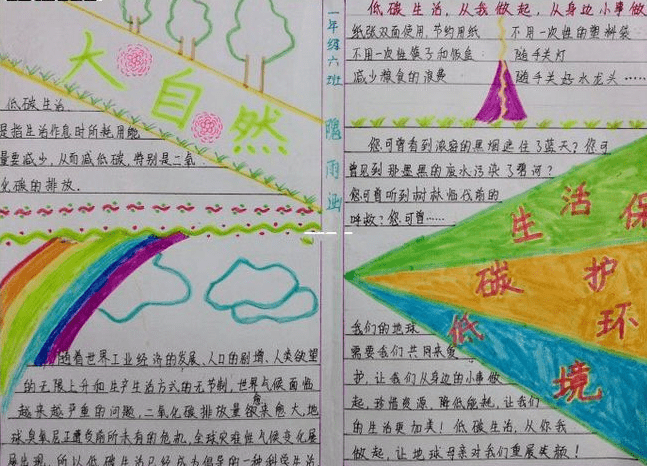 大自然
低碳生活
是指生活作息时所耗用能
量要减少,从而减低碳,特别是二氧
化碳的排放.
一年级六班
雨涵
低碳生活,从我做起,从身边小事做
纸张双面使用,节约用纸
不用一次性的塑料袋
不用一次性筷子和饭盒
随手关灯
减少粮食的浪费
随手关好水龙头……
您可曾看到浓密的黑烟遮住了蓝天?您可
曾见到那墨黑的废水污染了碧河?
您可曾听到树林临伐前的
呼救?您可曾……
生活保
碳护
低环
境
随着世界工业经济的发展、人口的剧增、人类欲望
的无限上升和生产生活方式的无节制,世界气候面临
越来越严重的问题,二氧化碳排放量愈来愈大,地
球臭氧层正遭受前所未有的危机,全球灾难性气候变化屡
屡出现,所以低碳生活已经成为倡导的一种科学生活
我们的地球
需要我们共同来爱
护,让我们从身边的小事做
起,珍惜资源、降低能耗,让我们
的生活更加美!低碳生活,从你我
做起,让地球母亲对我们重展笑颜!